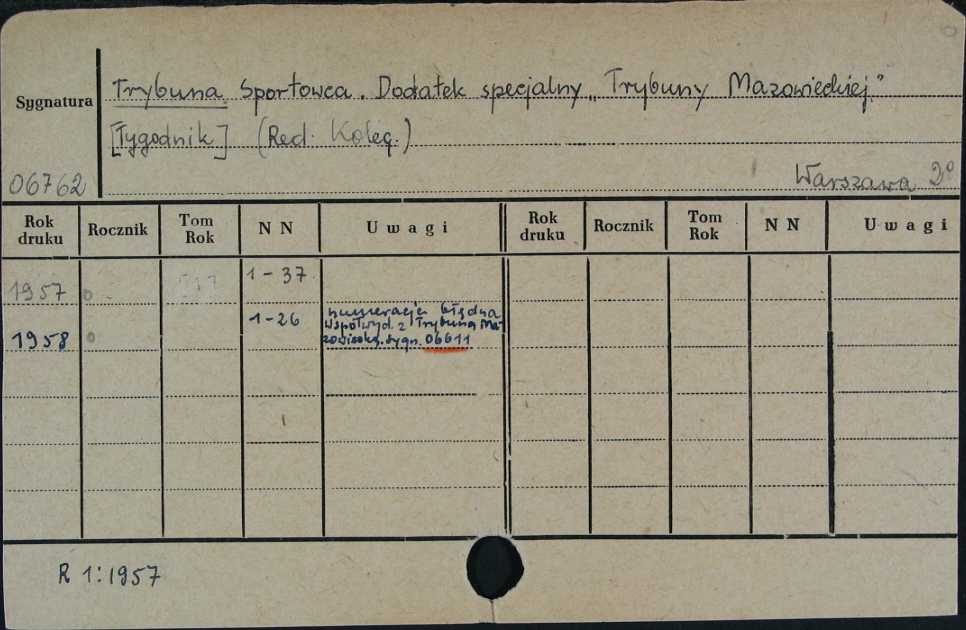 Sygnatura
Trybuna Sportowca. Dodatek specjalny „Trybuny Mazowieckiej"
[Tygodnik] (Red. Koleg.)
06762
Warszawa 2°
Rok druku Rocznik Tom Rok N N Uwagi Rok druku Rocznik Tom Rok N N Uwagi
1957 0 1-37
1958 0 1-26 numeracja błędna
Współwyd. z Trybuną Ma-
zowiecką. sygn. 06611
R 1:1957